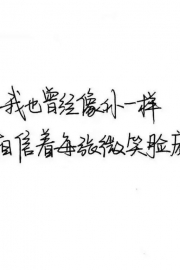 我也曾经像你一样
信着每张微笑脸